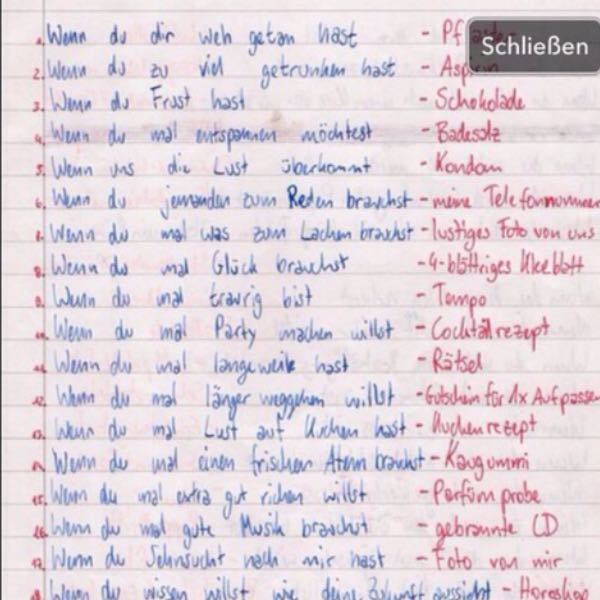 1. Wenn du dir weh getan hast - Pf
Schließen
2. Wenn du zu viel getrunken hast - Aspirin
3. Wenn du Frust hast - Schokolade
4. Wenn du mal entspannen möchtest - Badesalz
5. Wenn uns die Lust überkommt - Kondom
6. Wenn du jemanden zum Reden brauchst - meine Telefonnummer
Wenn du mal was zum Lachen brauchst - lustiges Foto von uns
Wenn du mal Glück brauchst - 4-blättriges Kleeblatt
9. Wenn du mal traurig bist - Tempo
10. Wenn du mal Party machen willst - Cocktailrezept
11. Wenn du mal langeweile hast - Rätsel
12. Wenn du mal länger weggehen willst - Gutschein für 1x Aufpassen
13. Wenn du mal Lust auf Kuchen hast - Kuchenrezept
14. Wenn du mal einen frischen Atem brauchst - Kaugummi
15. Wenn du mal extra gut richen willst - Parfümprobe
16. Wenn du mal gute Musik brauchst - gebrannte CD
17. Wenn du Sehnsucht nach mir hast - Foto von mir
18. Wenn du wissen willst wie deine Zukunft aussieht - Horoskop